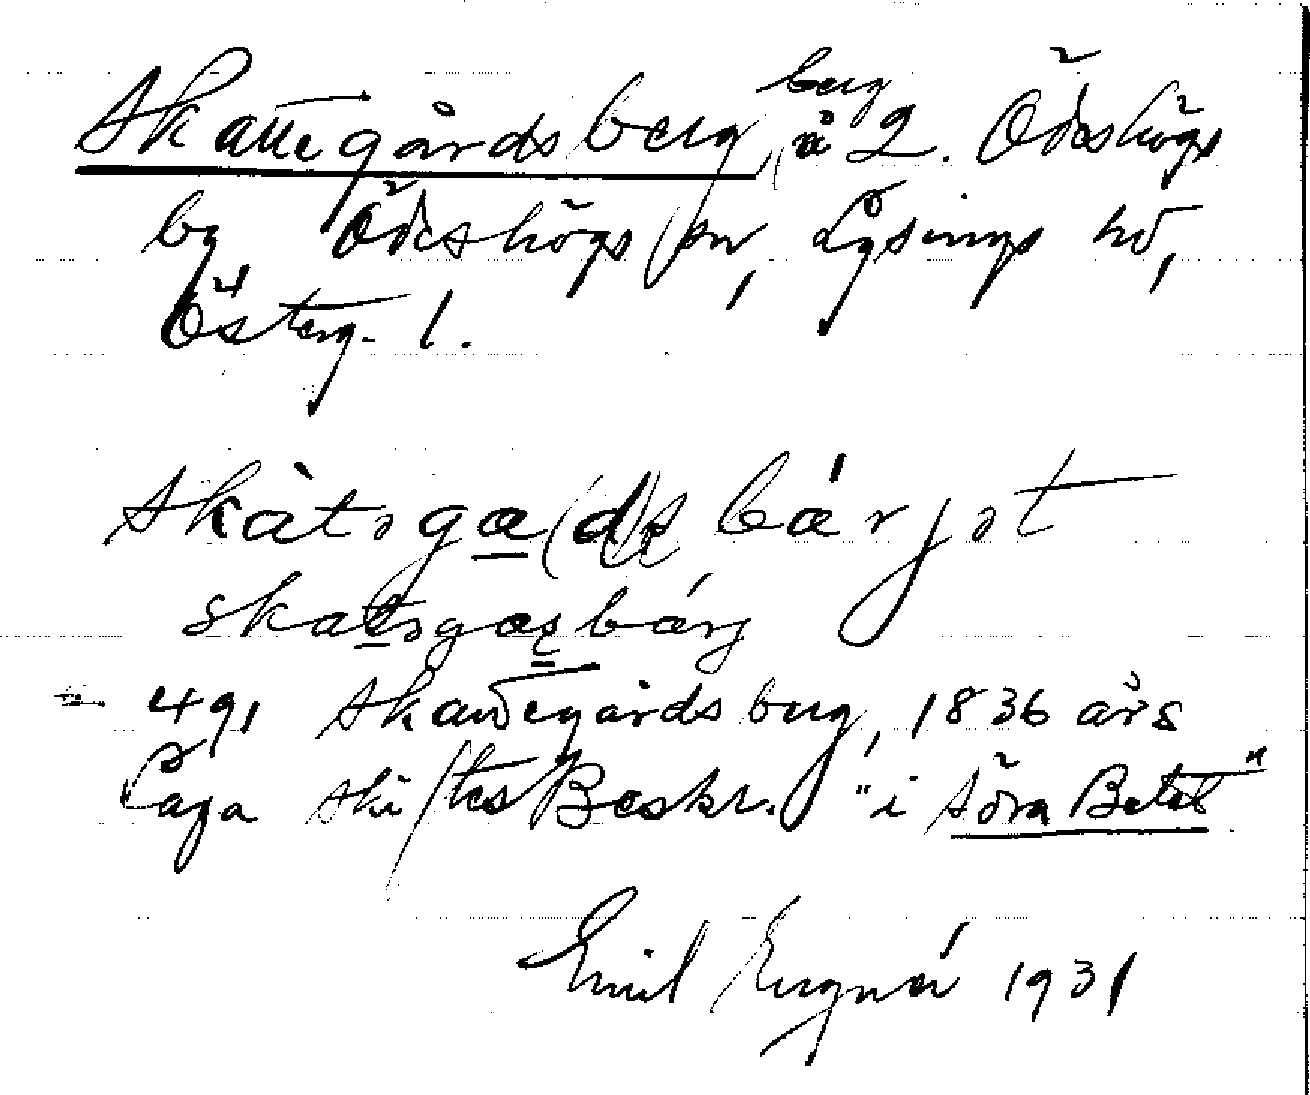 Skattegårdsberg, berg å 2. Ödeshögs
by Ödeshögs sn, Lysings hd,
Österg. l.
skàtəga(d)s bárjət
skatəgasbárj
491 Skattegårdsberg, 1836 års
Laga skiftes Beskr. "i Södra Betet"
Emil 1931